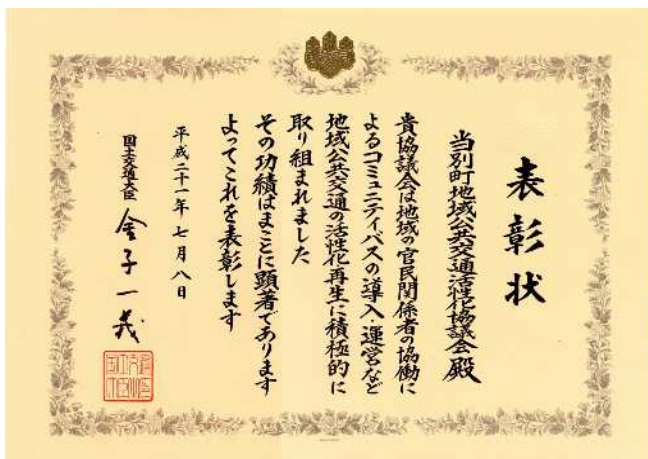 表彰状
当別町地域公共交通活性化協議会殿
貴協議会は地域の官民関係者の協働に
よるコミュニティバスの導入・運営など
地域公共交通の活性化再生に積極的に
取り組まれました
その功績はまことに顕著であります
よってこれを表彰します
平成二十一年七月八日
国土交通大臣 金子一義